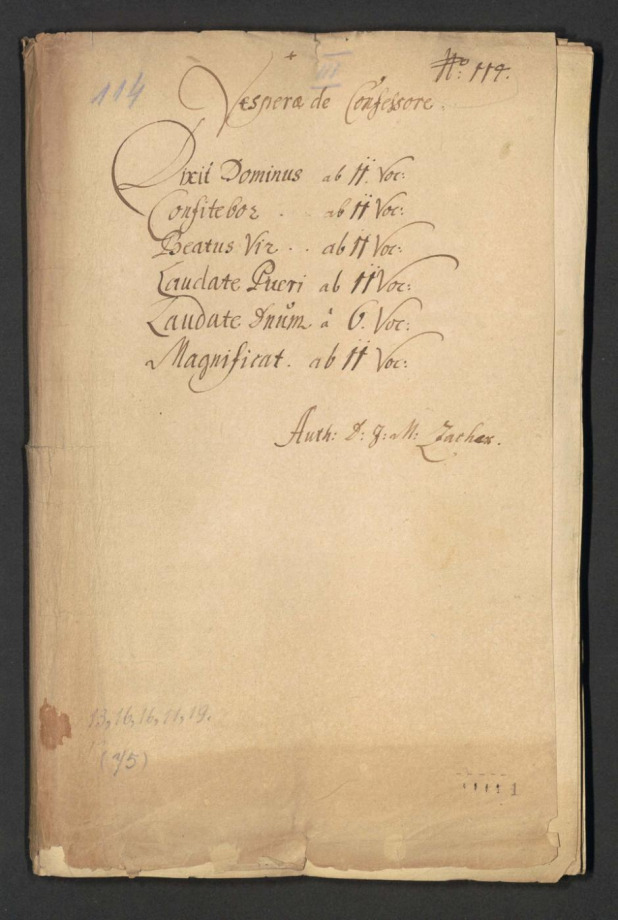 114
No: 114.
Vesperæ de Confessore.
Dixit Dominus ab 11. Voc:
Confitebor . . ab 11 Voc:
Beatus Vir . . ab 11 Voc:
Laudate Pueri ab 11 Voc:
Laudate Dnũm à 6. Voc:
Magnificat. ab 11 Voc:
Auth: D: J: M: Zacher.
13, 16, 16, 11, 19.